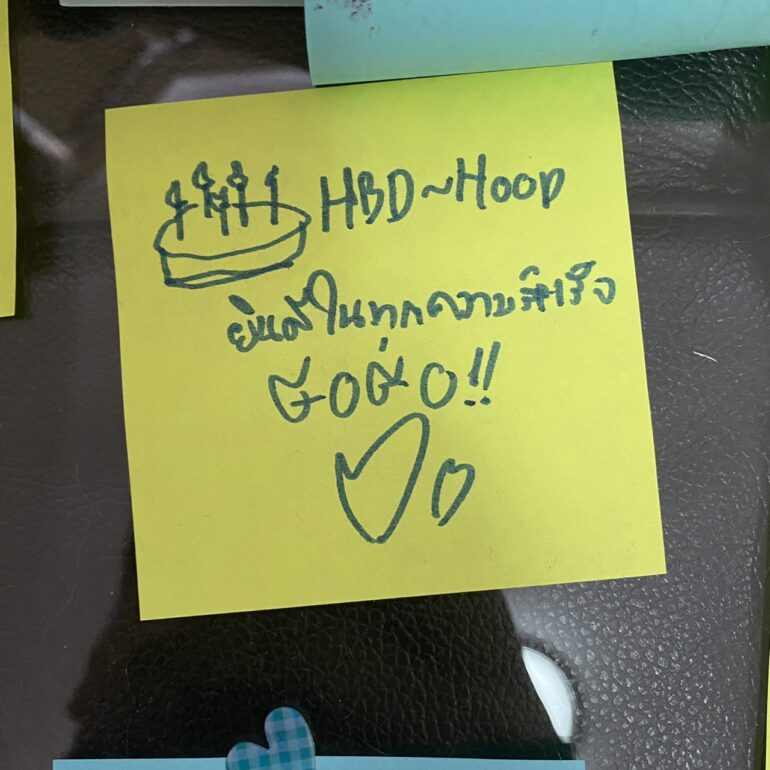 HBD~Hoop
ยินดีในทุกความสำเร็จ
!!